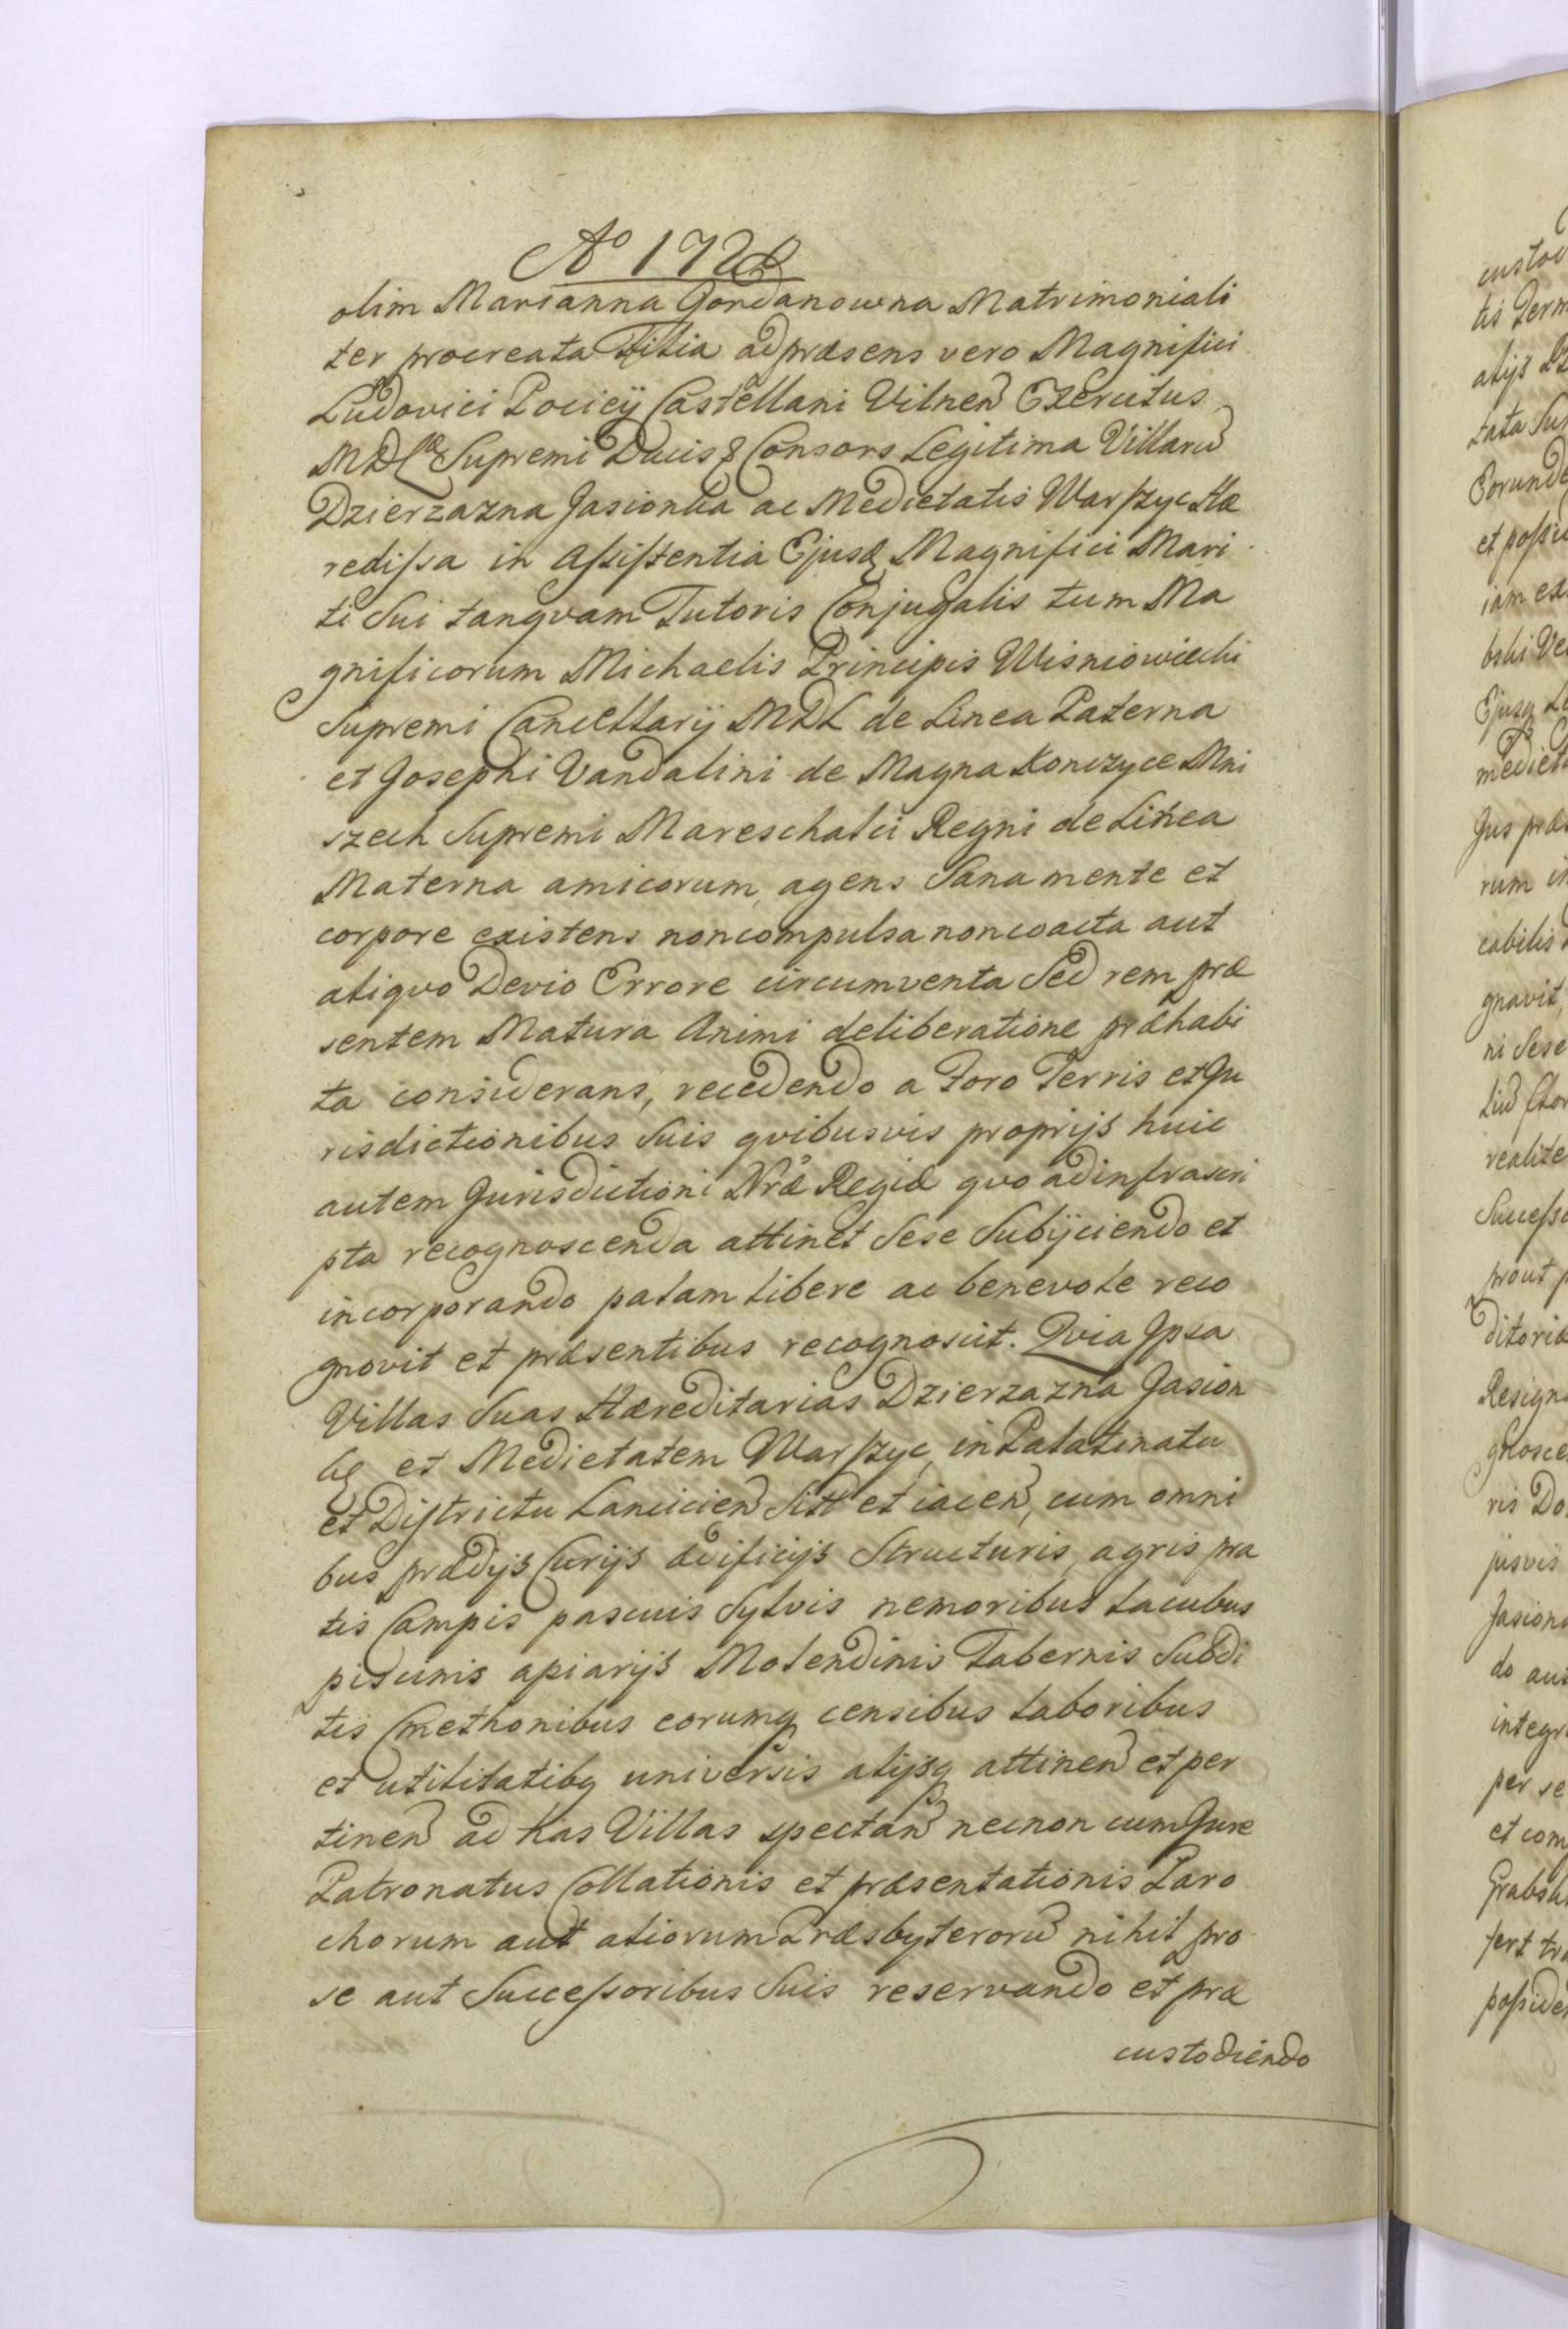 Aō 1722
olim Marianna Gordanowna Matrimoniali
ter procreata Filia ad præsens vero Magnifici
Ludovici Pociey Castellani Vilnen Exercitus
MDL Supremi Ducis & Consors Legitima Villarū
Dzierzazna Jasionka ac Medietatis Warszyc Hæ
redissa in assistentia Ejusq Magnifici Mari
ti Sui tanqvam Tutoris Conjugalis tum Ma
gnificorum Michaelis Principis Wisniowiecki
Supremi Cancellarij MDL de Linea Paterna
et Josephi Vandalini de Magna Konczyce Mni
szech Supremi Mareschalci Regni de Linea
Materna amicorum, agens Sana mente et
corpore existens non compulsa non coacta aut
aliqvo Devio Errore circumventa Sed rem præ
sentem Matura Animi deliberatione præhabi
ta considerans, recedendo a Foro Terris et Ju
risdictionibus Suis qvibusvis proprijs huic
autem Jurisdictioni Nræ Regiæ qvo ad infrascri
pta recognoscenda attinet Sese Subijciendo et
incorporando palam libere ac benevole reco
gnovit et præsentibus recognoscit. Qvia Ipsa
Villas Suas Hæreditarias Dzierzazna Jasion
ka et Medietatem Warszyc in Palatinatu
et Districtu Lancicien Sitt et iacen, cum omni
bus prædijs Curijs ædificijs Structuris, agris pra
tis Campis pascuis Sylvis nemoribus Lacubus
piscinis apiarijs Molendinis Tabernis Subdi
tis Cmethonibus eorumq censibus laboribus
et utilitatibq universis alijsq attinen et per
tinen ad has Villas spectan necnon cum Jure
Patronatus Collationis et præsentationis Paro
chorum aut aliorum Præsbyterorū nihil pro
se aut Successoribus Suis reservando et præ
custodiendo